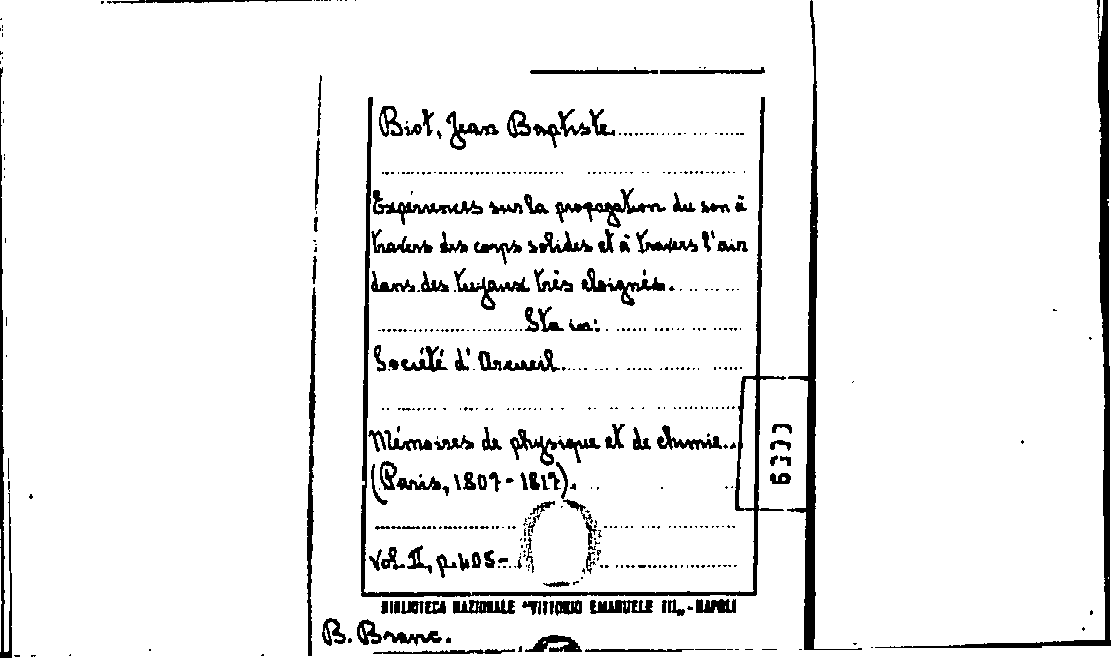 Biot, Jean Baptiste.
Expériences sur la propagation du son à
travers des corps solides et à travers l'air
dans des tuyaux très éloignés.
Sta in:
Société d'Arcueil.
Mémoires de physique et de chimie...
(Paris, 1807-1817).
vol. II, p. 405-
BIBLIOTECA NAZIONALE "VITTORIO EMANUELE III„ - NAPOLI
B. Branc.